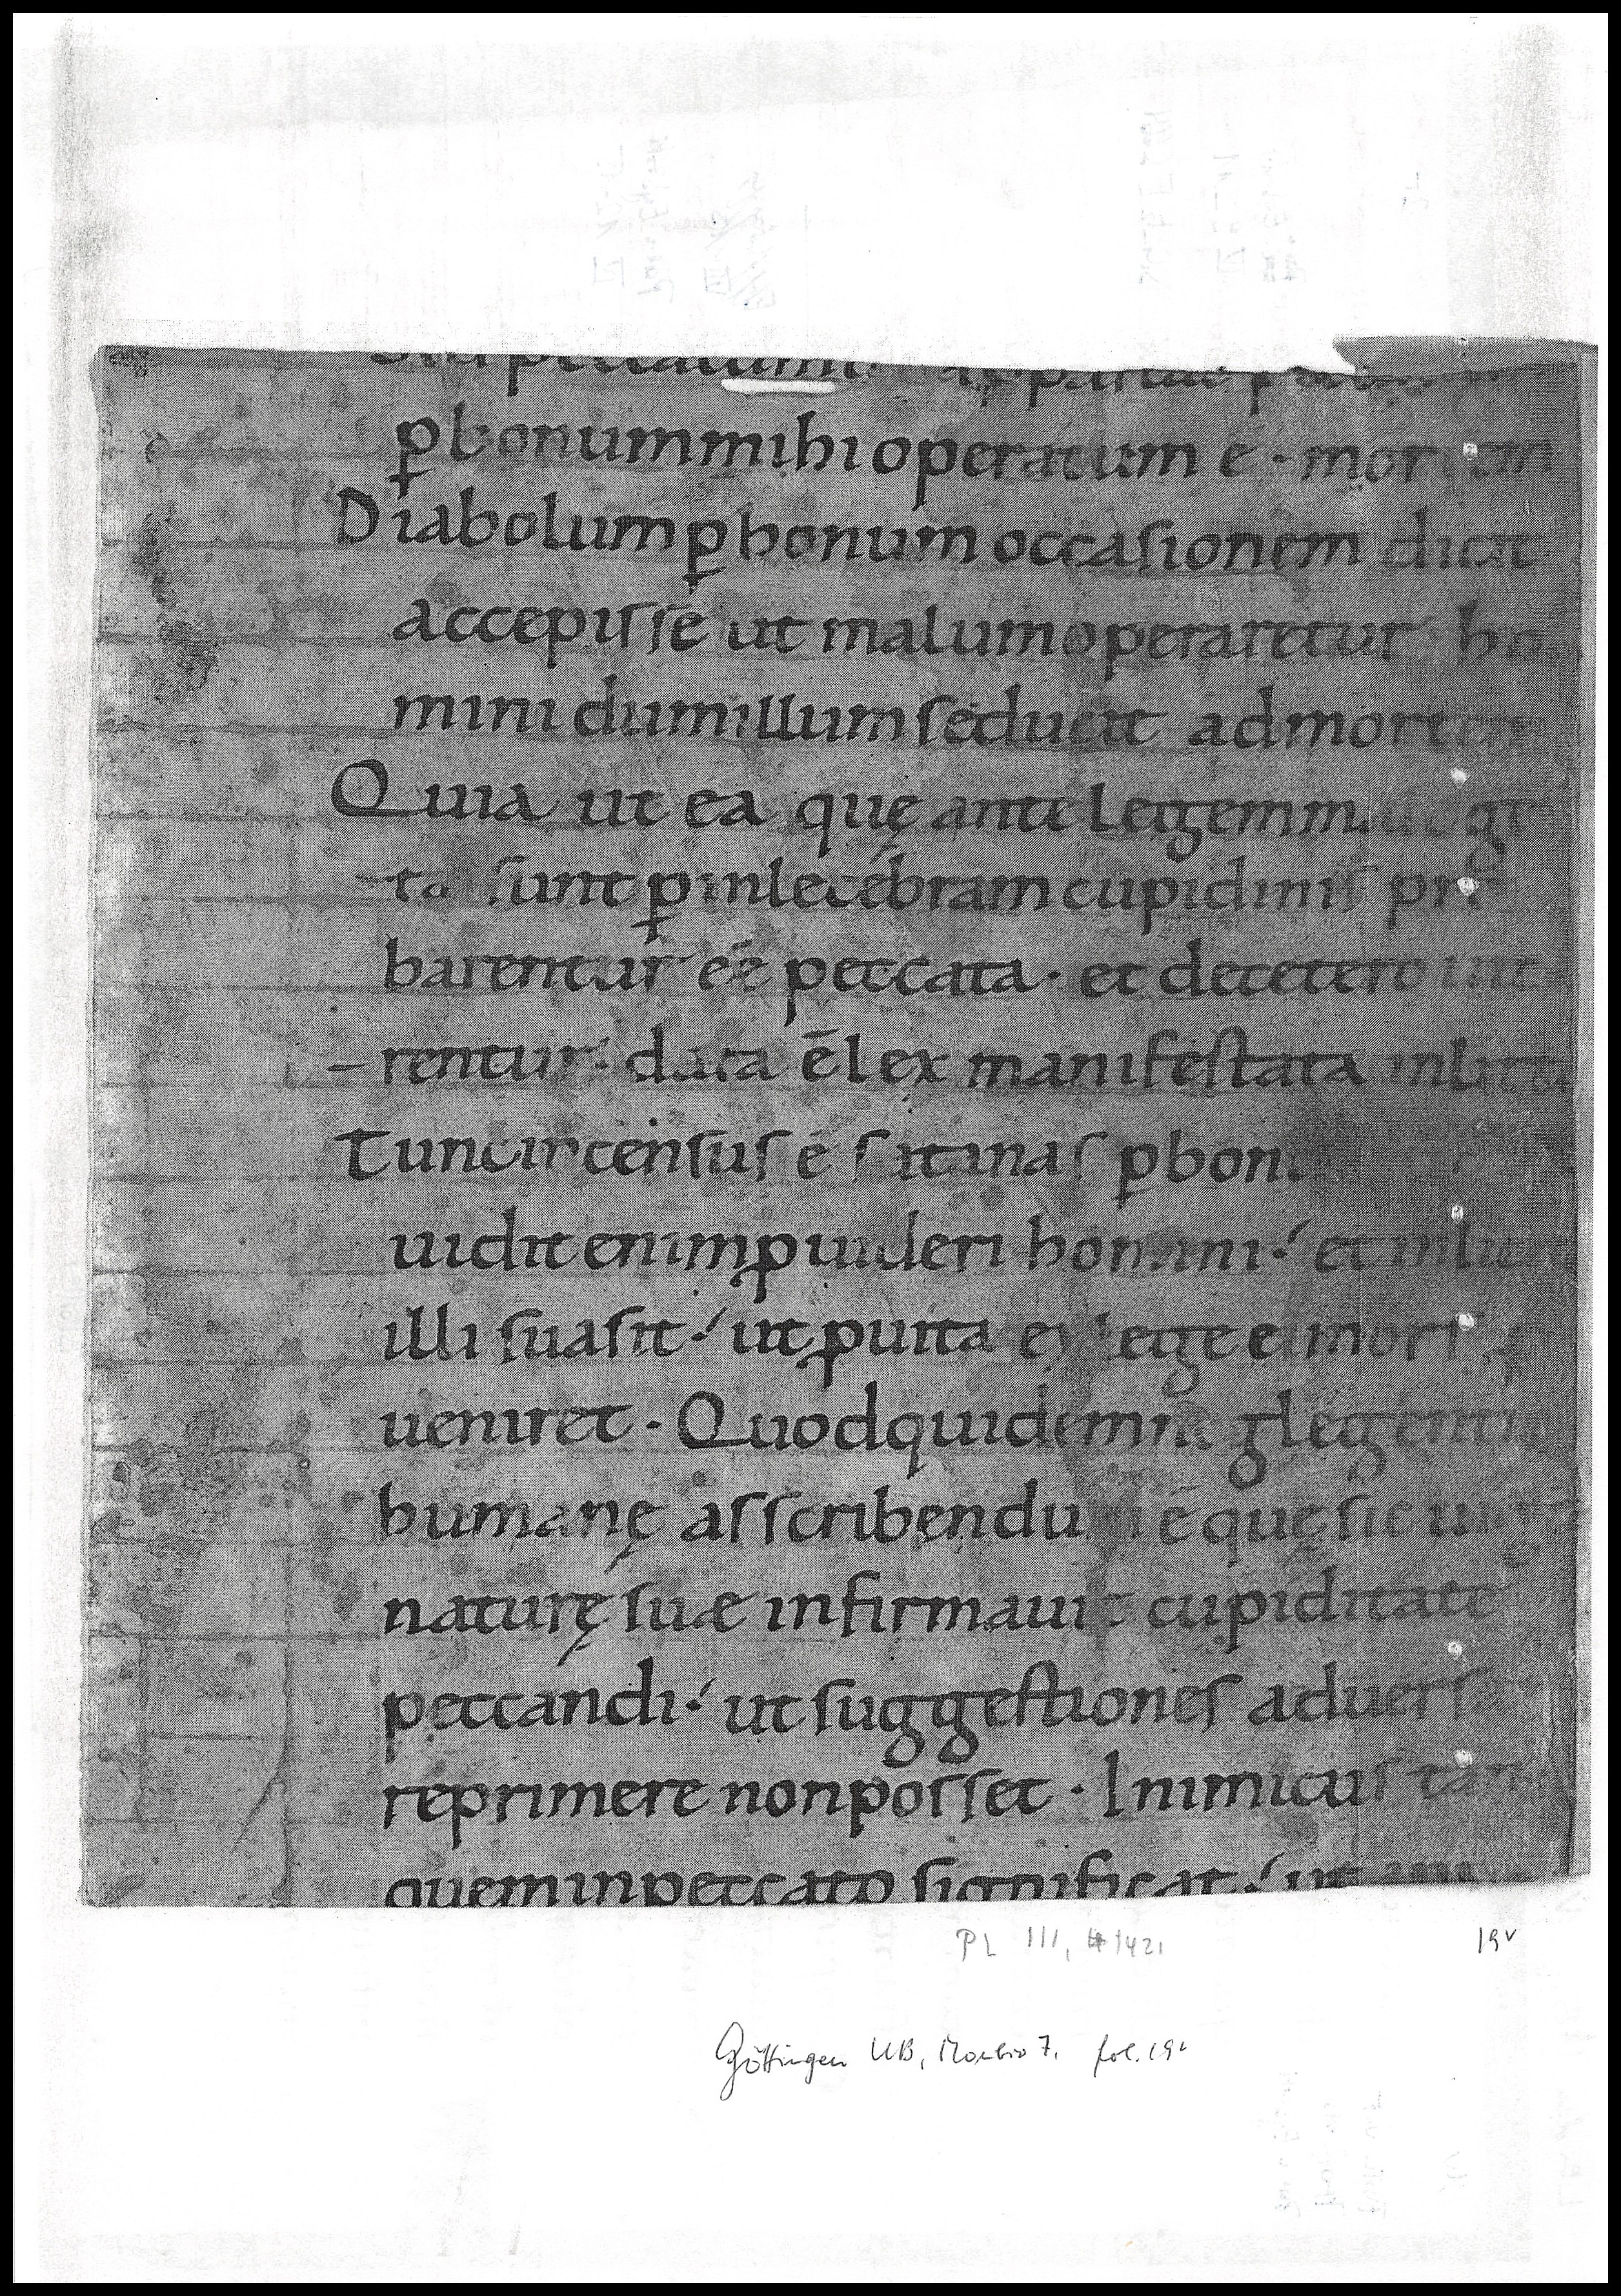 Sed peccatum ut appareat peccatum
ꝑ bonum mihi operatum ē · mortem
Diabolum ꝑ bonum occasionem dicit
accepisse ut malum operaretur ho
mini dum illum seducit ad mortem
Quia ut ea quę ante legem
ta sunt ꝑ inlecebram cupidinis pro
barentur eē peccata · et de cetero
rentur · data ē lex manifestata in
Tunc incensus ē satanas ꝑ bon
uidit enim ꝓuideri homini · et
illi suasit · ut ꝓuita ex lege ei mors
ueniret · Quod quidem neglegentię
humanę asscribendum ē quę sic
naturę suæ infirmauit cupiditate
peccandi · ut suggestiones aduersarii
reprimere non posset · Inimicus
quem in peccato significat · ut
PL 111, 1421 19v
Göttingen UB, Morbio 7. fol. 19v